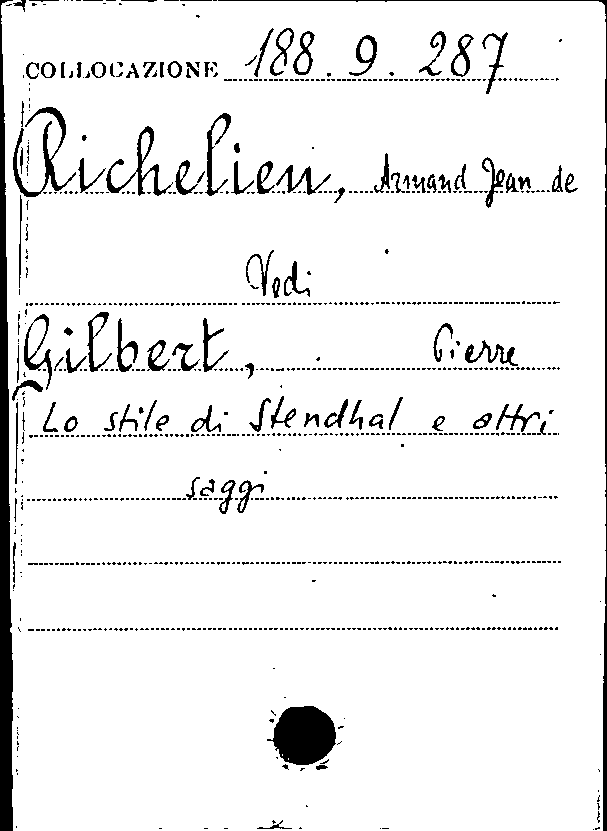 COLLOCAZIONE 188.9.287
Richelieu, Armand Jean de
Vedi
Gilbert, Pierre
Lo stile di Stendhal e altri
saggi